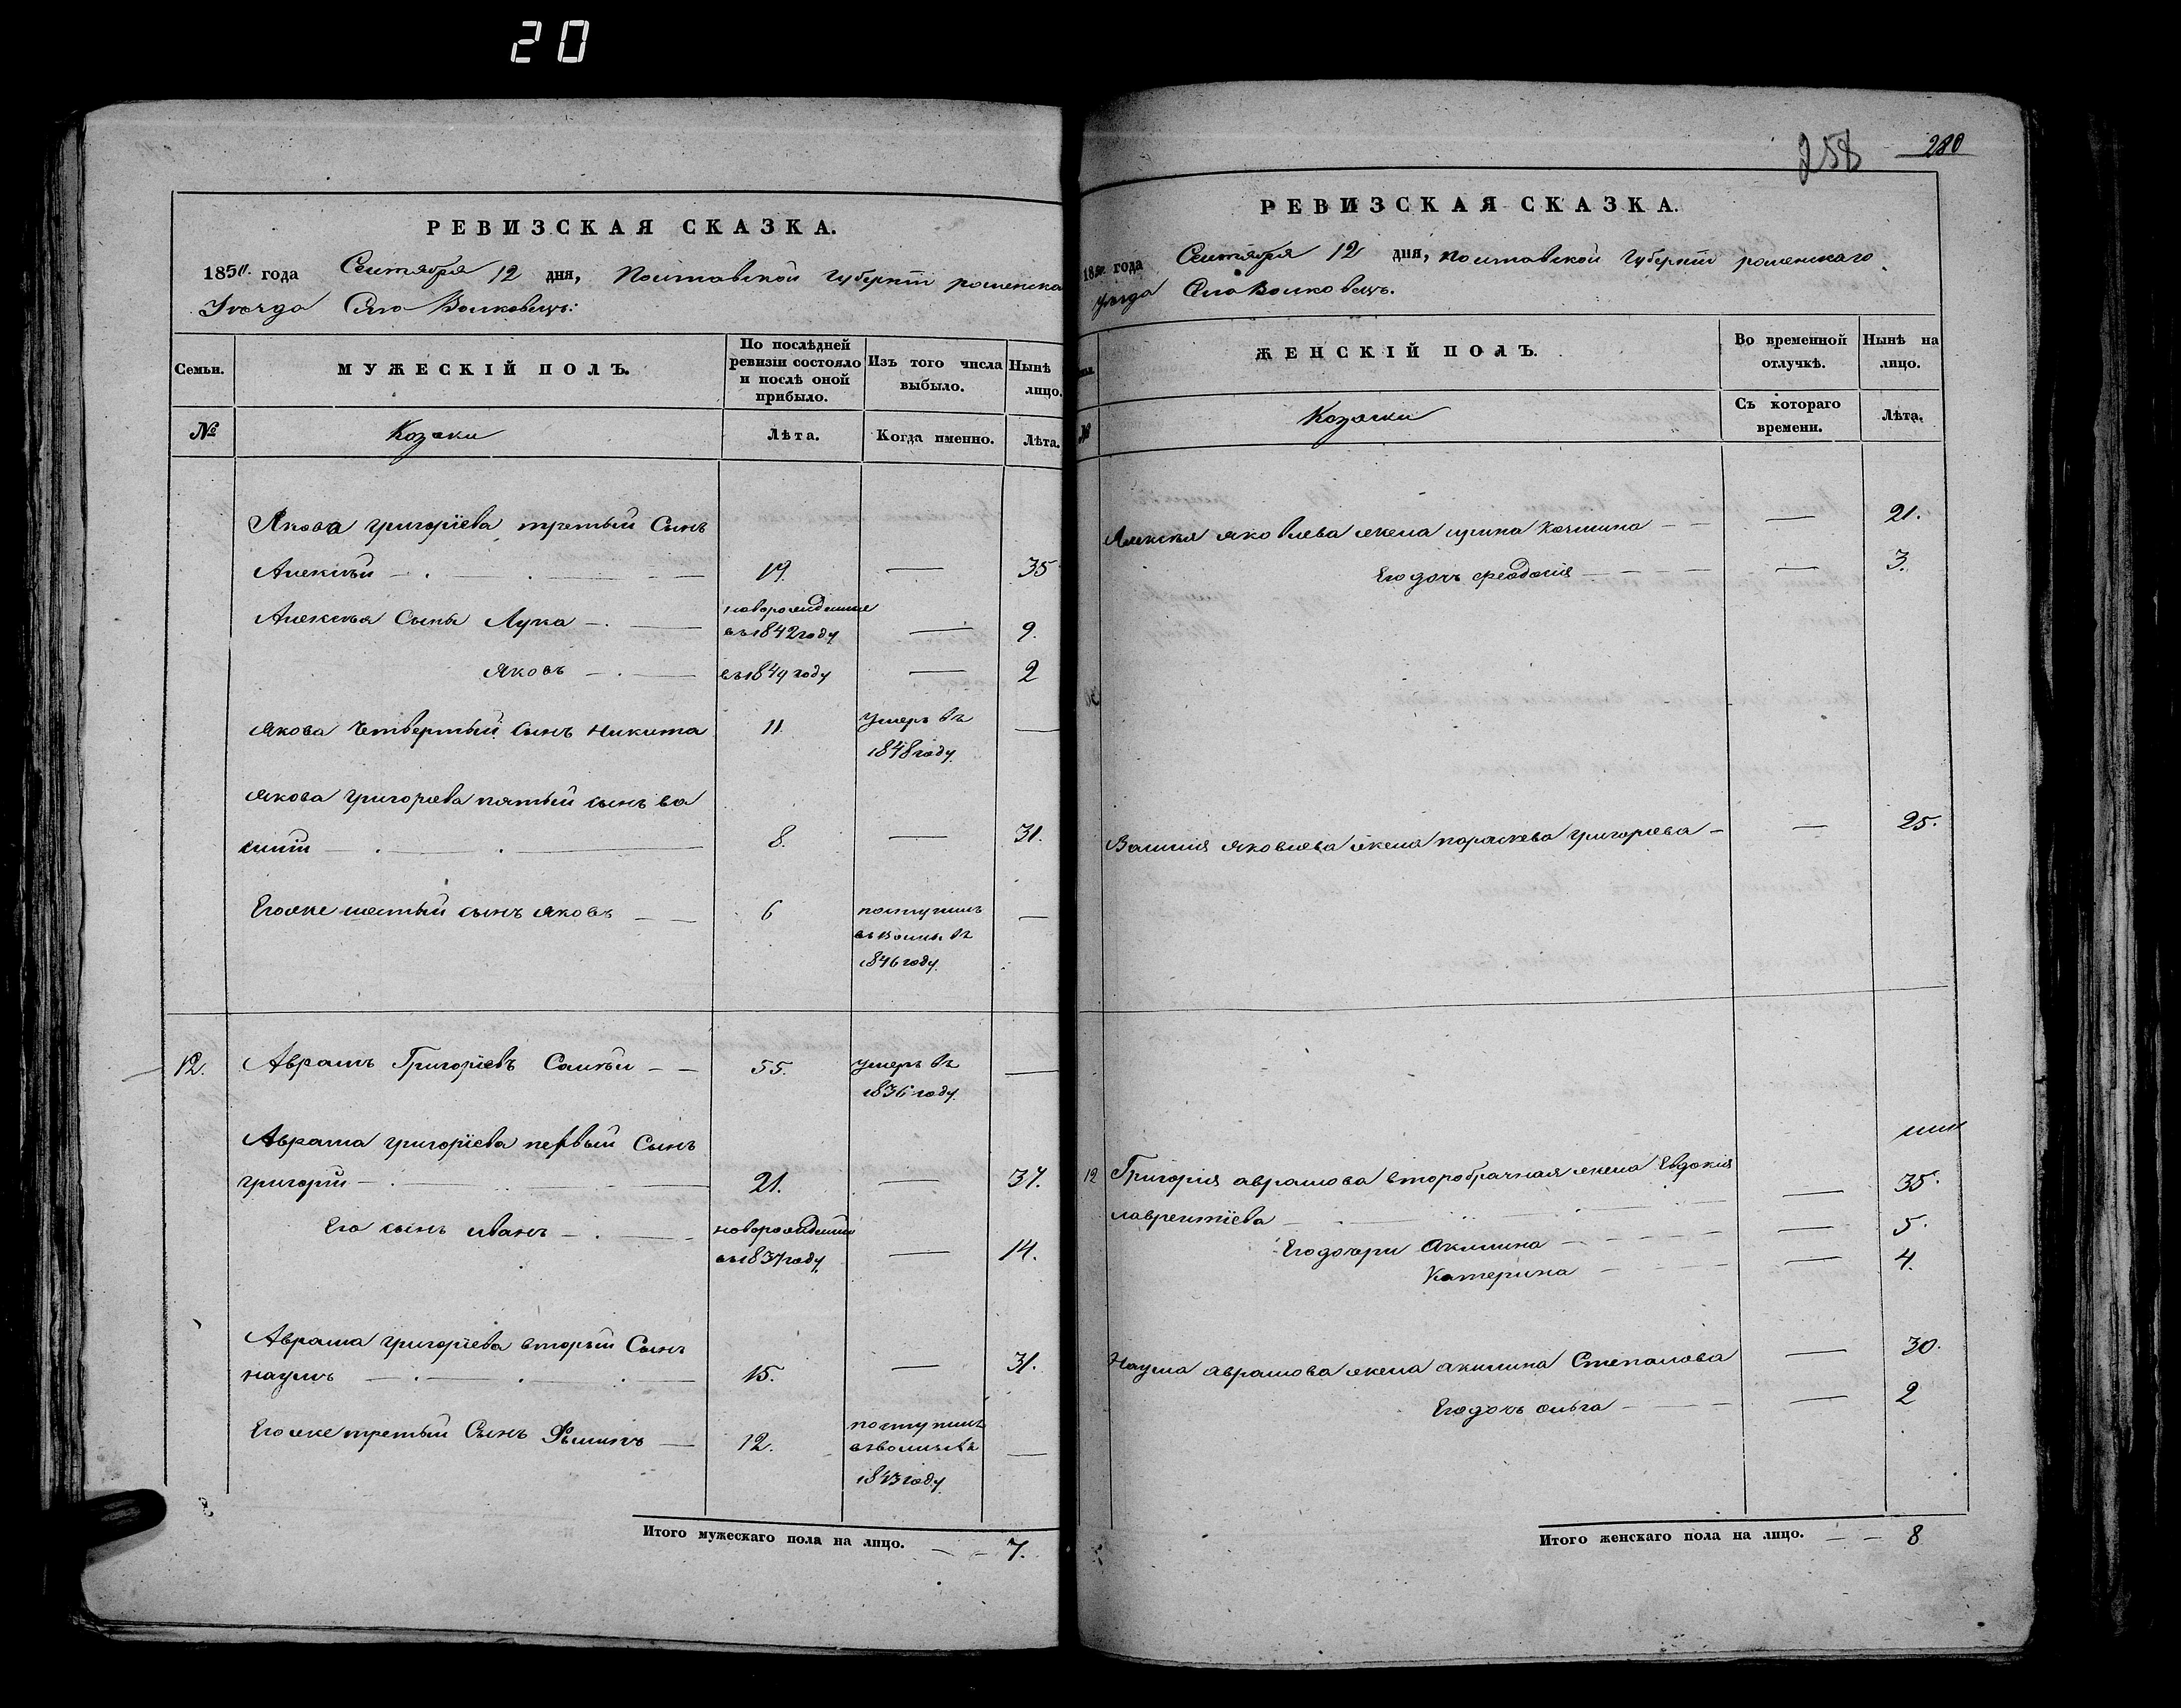 20
РЕВИЗСКАЯ СКАЗКА.
1850. года Сентября 12 дня, Полтавской Губерніи роменска
Уѣзда Села Волковецъ:
Семьи.
МУЖЕСКІЙ ПОЛЪ.
По послѣдней ревизіи состояло и послѣ оной прибыло.
Изъ того числа выбыло.
Нынѣ лицо.
№
Козаки
Лѣта.
Когда именно.
Лѣта.
Якова григоріева третьій Сынъ
Алексѣй 19. 35
Алексѣя Сыны Лука новорожденные въ 1842 году 9.
Яковъ въ 1849 году 2
Якова Четвертый Сынъ Никита 11 умеръ въ 1848 году
Якова григорьева пятый сынъ ва
силій 8. 31.
Егоже шестый сынъ яковъ 6 поступилъ 1846 году
12. Аврамъ Григоріевъ Самѣй 55. умеръ въ 1836 году
Аврама григоріева первый Сынъ
григорій 21. 37.
Его сынъ иванъ новорожденный въ 1837 году 14.
Аврама григоріева вторый Сынъ
наумъ 15. 31.
Егоже третьій Сынъ 12. поступилъ 1843 году
Итого мужескаго пола на лицо. 7.
258 280
РЕВИЗСКАЯ СКАЗКА.
1850. года Сентября 12 дня, полтавской Губерніи роменскаго
уѣзда Села Волковецъ.
№
ЖЕНСКІЙ ПОЛЪ.
Во временной отлучкѣ.
Нынѣ на лицо.
Козачки
Съ котораго времени.
Лѣта.
Алексѣя яковлева жена ирина 21.
Его дочь феодосія 3.
Василія яковлева жена параскева григорьева 25.
12 Григорія аврамова второбрачная жена Евдокія
лаврентіева 35.
Его дочери Акилина 5.
Катерина 4.
Наума аврамова жена акилина Степанова 30.
Его дочь ольга 2
Итого женскаго пола на лицо. 8